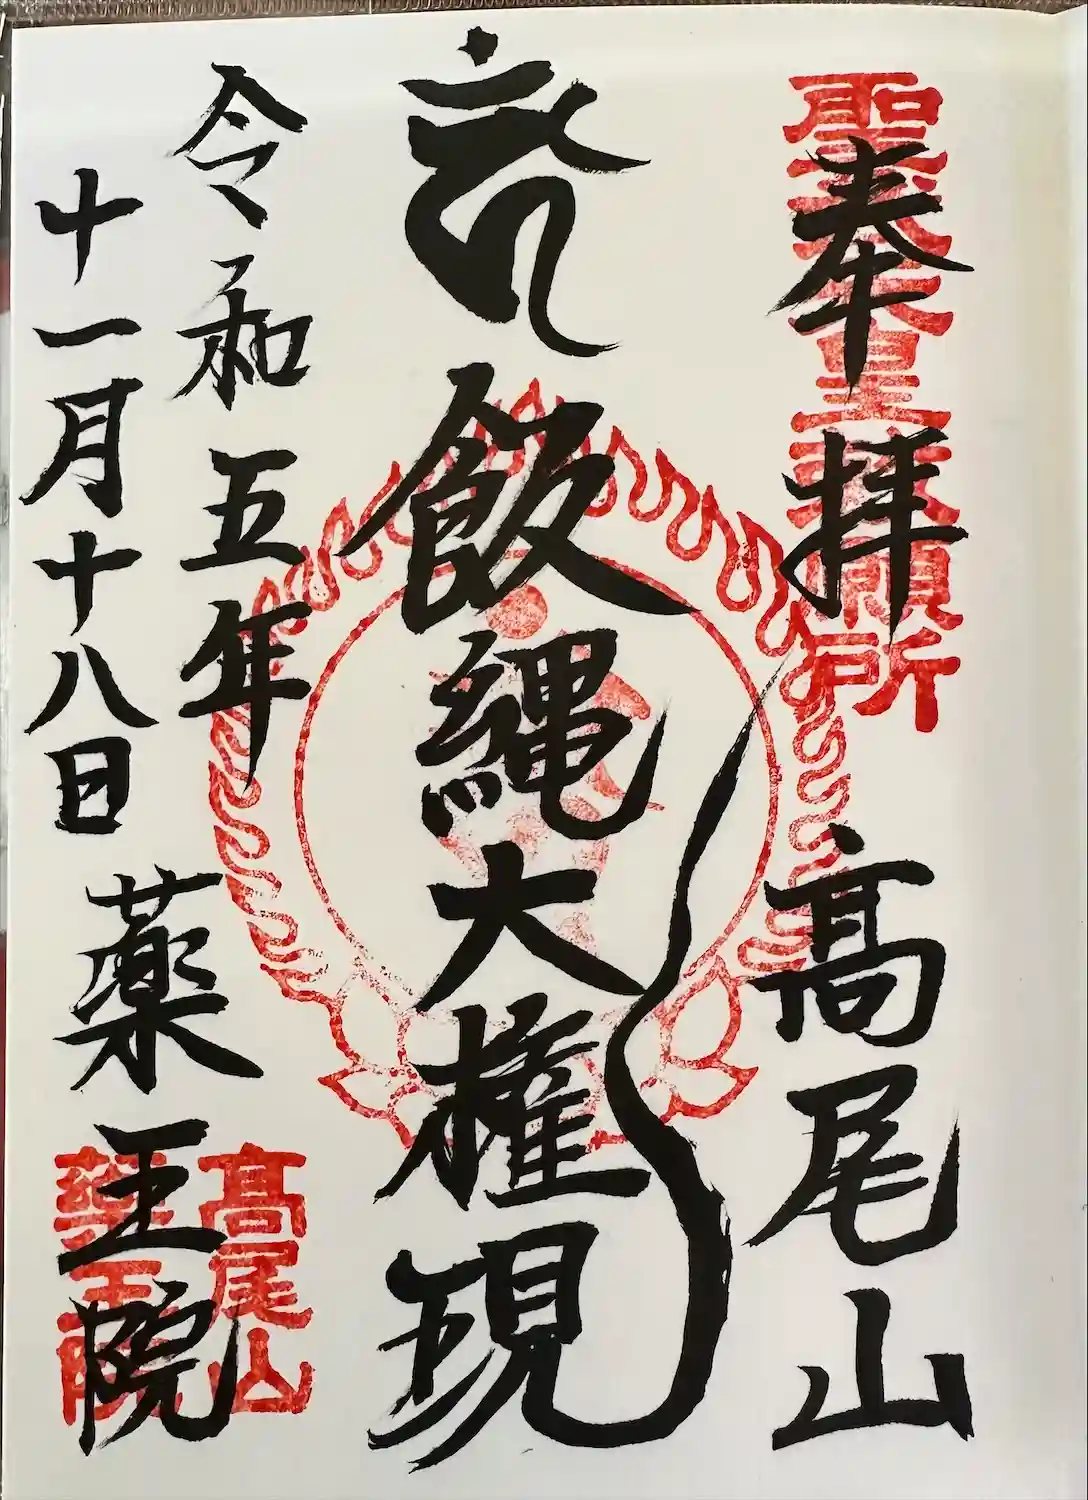 奉拝
髙尾山
飯縄大権現
令和五年
十一月十八日
薬王院
髙尾山